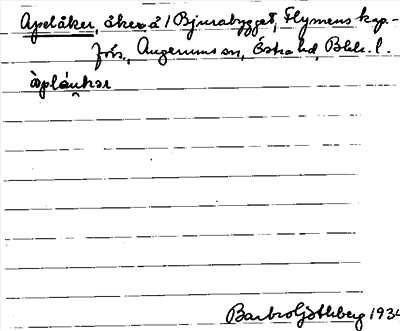 Apelåker, åker å Bjurabygget, Flymens kap.-
förs., Augerums sn, Östra hd, Blek. l.
Barbro Götlberg 1934